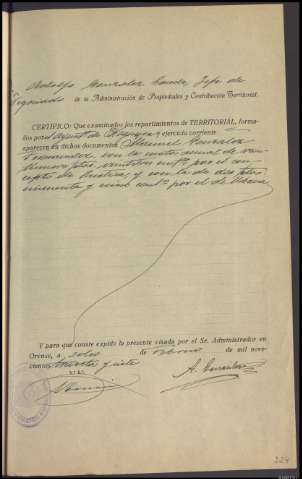 Adolfo Gonzalez Conde, Jefe de
Negociado de la Administración de Propiedades y Contribución Territorial.
CERTIFICO: Que examinados los repartimientos de TERRITORIAL, forma-
dos por el Ayunt.º de y ejercicio corriente
aparece en dichos documentos Manuel Gonzalez
con la cuota anual de
pts. cent.s por el con-
cepto de Rústica y con la de dos ptas
cincuenta y cent.s por el de Urbana
Y para que conste expido la presente visada por el Sr. Administrador en
Orense, a ocho de de mil nove-
cientos treinta y siete
V.º B.º
A. Gonzalez
224